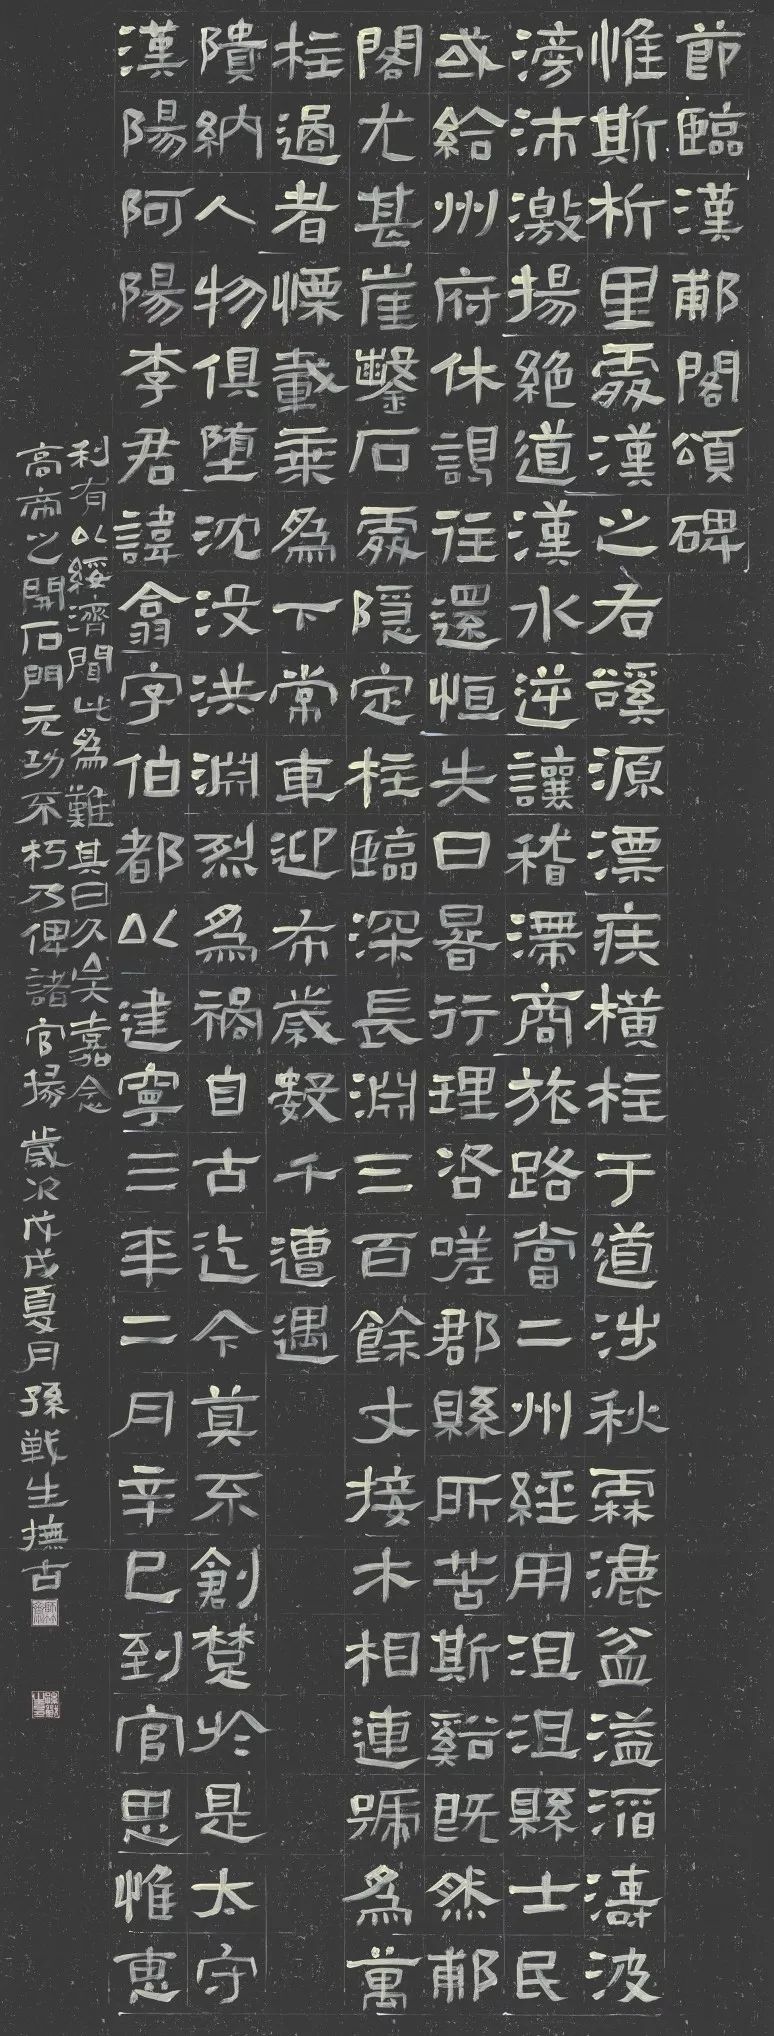 節臨漢郙閣頌碑
惟斯析里處漢之右谿源漂疾橫柱于道涉秋霖漉盆溢滔濤波
滂沛激揚絕道漢水逆讓稽滯商旅路當二州經用沮沮縣士民
或給州府休謁往還恒失日晷行理咨嗟郡縣所苦斯谿既然郙
閣尤甚崖鑿石處隱定柱臨深長淵三百餘丈接木相連號為萬
柱過者慄載乘為下常車迎布歲數千遭遇
隤納人物俱墮沈沒洪淵烈為禍自古迄今莫不創楚於是太守
漢陽阿陽李君諱翕字伯都以建寧三年二月辛巳到官思惟惠
利有以綏濟聞此為難其日久矣嘉念
高帝之開石門元功不朽乃俾諸官掾 歲次戊戌夏月孫戰生撫古